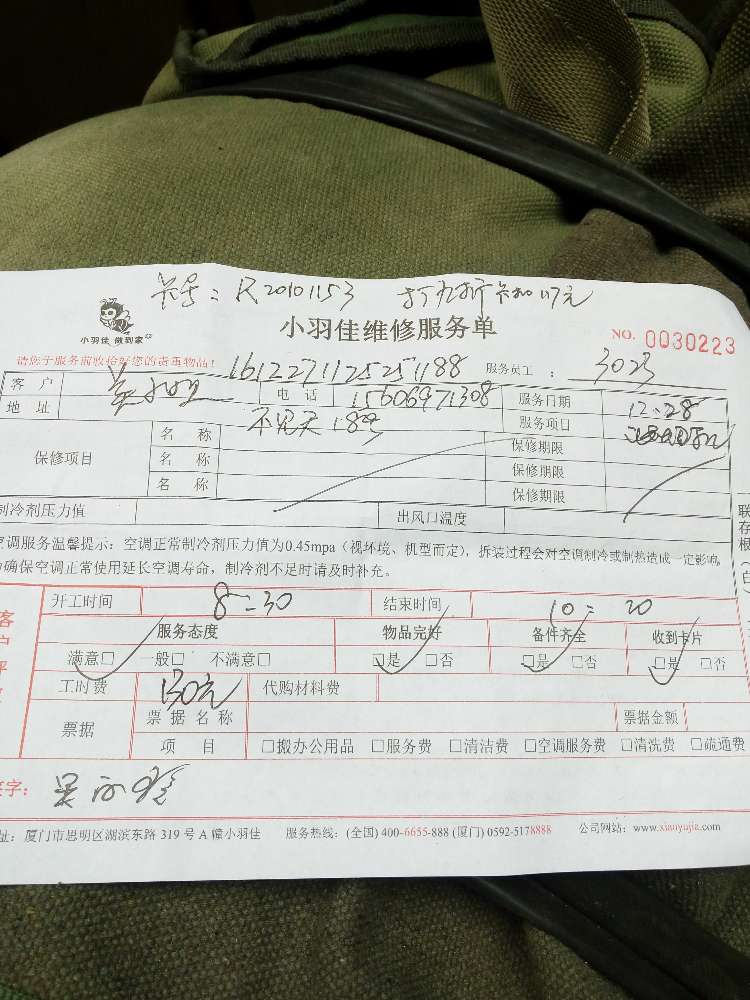 卡号：R20101153 打九折卡扣117元
小羽佳 做到家
小羽佳维修服务单
NO. 0030223
请您于服务前收拾好您的贵重物品！
1612271125251188
服务员工： 3023
客户 电话 15606971308 服务日期 12-28
地址 不见天18号 服务项目
保修项目 名称 保修期限
名称 保修期限
名称 保修期限
制冷剂压力值 出风口温度
空调服务温馨提示：空调正常制冷剂压力值为0.45mpa（视环境、机型而定），拆装过程会对空调制冷或制热造成一定影响，
确保空调正常使用延长空调寿命，制冷剂不足时请及时补充。
联存根（白）
开工时间 8=30 结束时间 10=20
客户评
服务态度 物品完好 备件齐全 收到卡片
满意□ 一般□ 不满意□ □是 □否 □是 □否 □是 □否
工时费 130元 代购材料费
票据 票据名称 票据金额
项目 □搬办公用品 □服务费 □清洁费 □空调服务费 □清洗费 □疏通费
签字：
址：厦门市思明区湖滨东路 319 号 A 幢小羽佳 服务热线：(全国) 400-6655-888 (厦门) 0592-5178888 公司网站：www.xiaoyujia.com